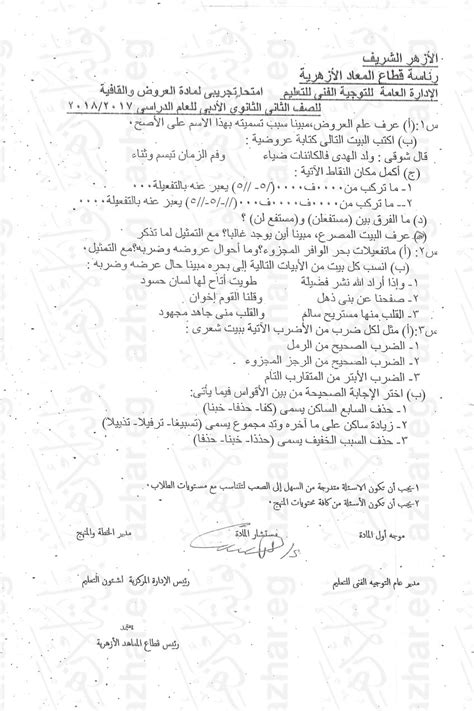 الأزهر الشريف
رئاسة قطاع المعاد الأزهرية
الإدارة العامة للتوجية الفنى للتعليم امتحان تجريبى لمادة العروض والقافية
للصف الثانى الثانوى الأدبى للعام الدراسى ٢٠١٨/٢٠١٧
س١:(أ) عرف علم العروض، مبينا سبب تسميته بهذا الاسم على الأصح.
(ب) اكتب البيت التالى كتابة عروضية :
قال شوقى : ولد الهدى فالكائنات ضياء وفم الزمان تبسم وثناء
(ج) أكمل مكان النقاط الآتية :
١- ما تركب من ....ف....(/٥- //٥) يعبر عنه بالتفعيلة...
٢-- ما تركب من ....ف....(//-/٥-//٥) يعبر عنه بالتفعيلة....
(د) ما الفرق بين (مستفعلن) و(مستفع لن) ؟
عرف البيت المصرع، مبينا أين يوجد غالبا؟ مع التمثيل لما تذكر
س٢: (أ) ماتفعيلات بحر الوافر المجزوء؟وما أحوال عروضه وضربه؟مع التمثيل.
(ب) انسب كل بيت من الأبيات التالية إلى بحره مبينا حال عرضه وضربه :
١- وإذا أراد الله نشر فضيلة طويت أتاح لها لسان حسود
٢- صفحنا عن بنى ذهل وقلنا القوم إخوان
٣- القلب منها مستريح سالم والقلب منى جاهد مجهود
س٣:(أ) مثل لكل ضرب من الأضرب الآتية ببيت شعرى :
١- الضرب الصحيح من الرمل
٢- الضرب الصحيح من الرجز المجزوء
٣- الضرب الأبتر من المتقارب التام
(ب) اختر الإجابة الصحيحة من بين الأقواس فيما يأتى:
١- حذف السابع الساكن يسمى (كفا- حذفا- خبنا)
٢- زيادة ساكن على ما آخره وتد مجموع يسمى (تسبيغا- ترفيلا- تذييلا)
٣- حذف السبب الخفيف يسمى (حذذا- خبنا- حذفا)
١-يجب أن تكون الاسئلة متدرجة من السهل إلى الصعب لتتناسب مع مستويات الطلاب.
٢-يجب أن تكون الأسئلة من كافة محتويات المنهج.
موجه أول المادة مستشار المادة مدير الخطة والمنهج
مدير عام التوجيه الفنى للتعليم رئيس الإدارة المركزية لشئون التعليم
يعتمد
رئيس قطاع المعاهد الأزهرية
azhar eg